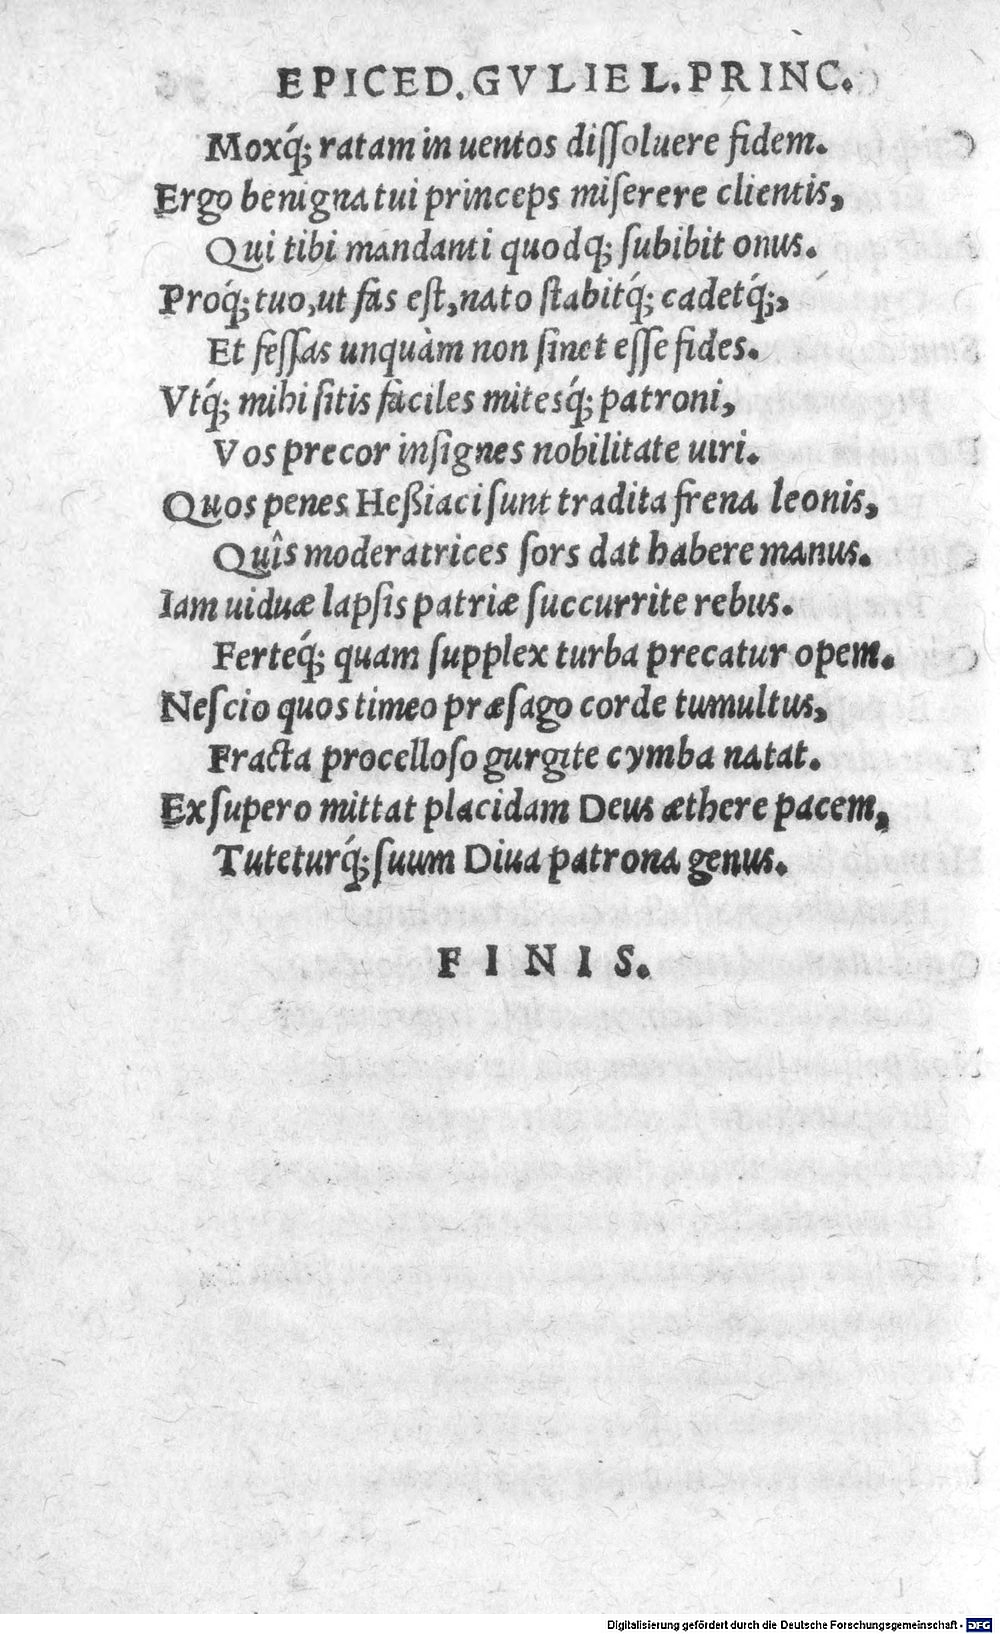 EPICED. GVLIEL. PRINC.
Moxq́; ratam in uentos dissoluere fidem.
Ergo benigna tui princeps miserere clientis,
Qui tibi mandanti quodq; subibit onus.
Proq́; tuo, ut fas est, nato stabitq́; cadetq́;,
Et fessas unquàm non sinet esse fides.
Vtq́; mihi sitis faciles mitesq́; patroni,
Vos precor insignes nobilitate uiri.
Quos penes Heßiaci sunt tradita frena leonis,
Quîs moderatrices sors dat habere manus.
Iam uiduæ lapsis patriæ succurrite rebus.
Ferteq́; quam supplex turba precatur opem.
Nescio quos timeo præsago corde tumultus,
Fracta procelloso gurgite cymba natat.
Ex supero mittat placidam Deus æthere pacem,
Tuteturq́; suum Diua patrona genus.
FINIS.
Digitalisierung gefördert durch die Deutsche Forschungsgemeinschaft - DFG